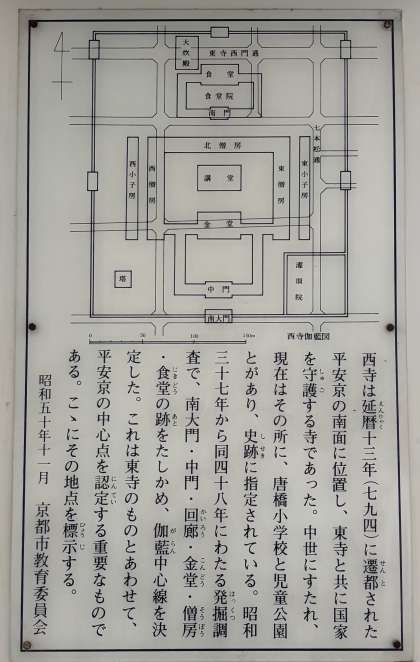 大炊殿
東寺西門通
食堂
食堂院
南門
七本松通
北僧房
西小子房
西僧房
講堂
東僧房
東小子房
金堂
塔
中門
灌頂院
南大門
0 50 100 150m
西寺伽藍図
西寺は延暦十三年(七九四)に遷都された
平安京の南面に位置し、東寺と共に国家
を守護する寺であった。中世にすたれ、
現在はその所に、唐橋小学校と児童公園
とがあり、史跡に指定されている。昭和
三十七年から同四十八年にわたる発掘調
査で、南大門・中門・回廊・金堂・僧房
・食堂の跡をたしかめ、伽藍中心線を決
定した。これは東寺のものとあわせて、
平安京の中心点を認定する重要なもので
ある。こゝにその地点を標示する。
昭和五十年十一月 京都市教育委員会